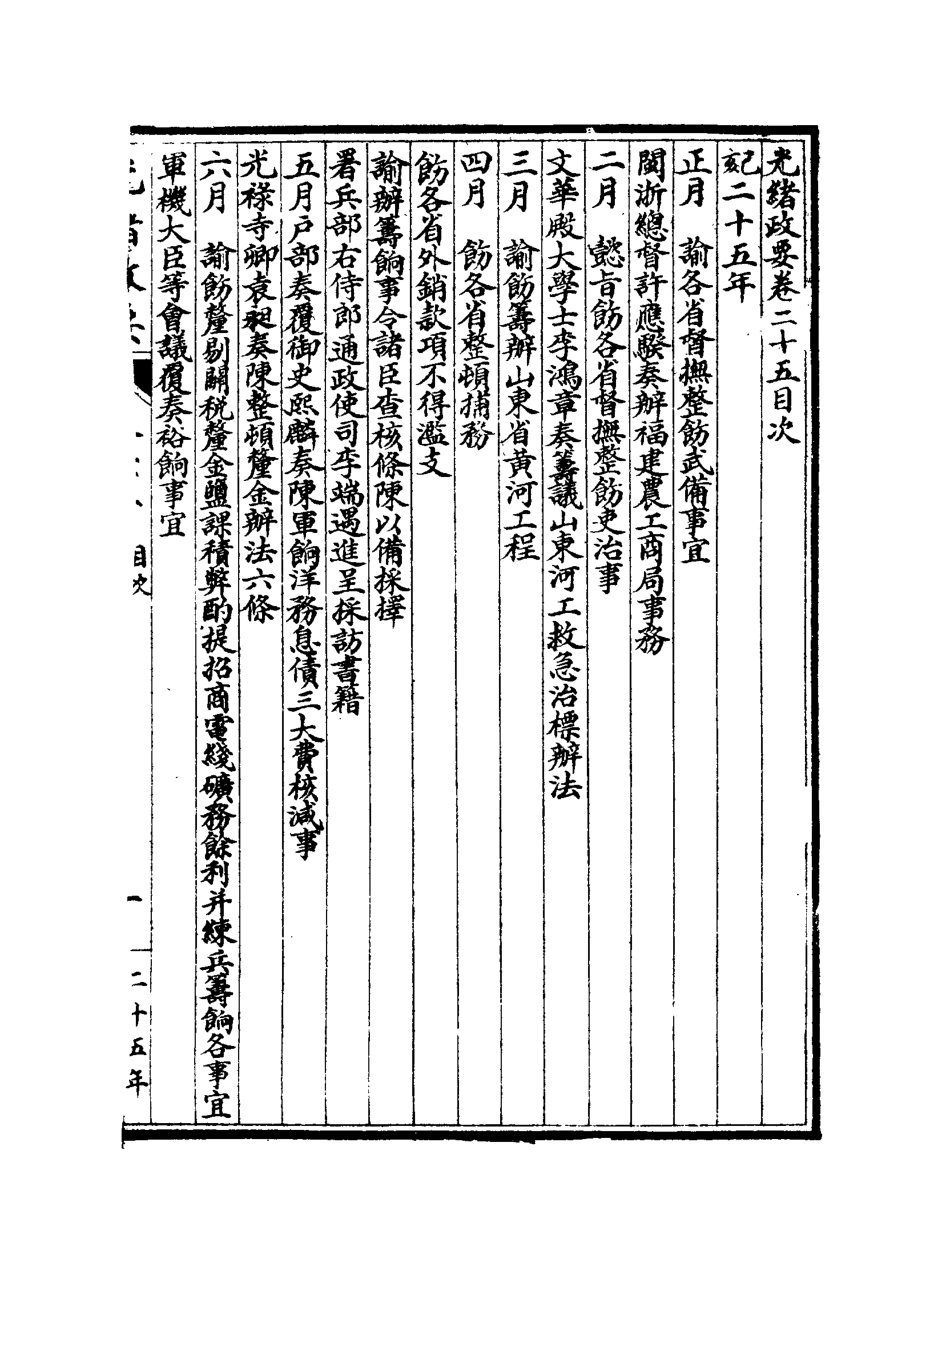 光緒政要卷二十五目次
己亥二十五年
正月　諭各省督撫整飭武備事宜
閩浙總督許應騤奏辦福建農工商局事務
二月　懿旨飭各省督撫整飭吏治事
文華殿大學士李鴻章奏籌議山東河工救急治標辦法
三月　諭飭籌辦山東省黃河工程
四月　飭各省整頓捕務
飭各省外銷款項不得濫支
諭辦籌餉事令諸臣查核條陳以備採擇
署兵部右侍郎通政使司李端遇進呈採訪書籍
五月戶部奏覆御史熙麟奏陳軍餉洋務息債三大費核減事
光祿寺卿袁昶奏陳整頓釐金辦法六條
六月　諭飭釐剔關稅釐金鹽課積弊酌提招商電綫礦務餘利并練兵籌餉各事宜
軍機大臣等會議覆奏裕餉事宜
目次　一　二十五年